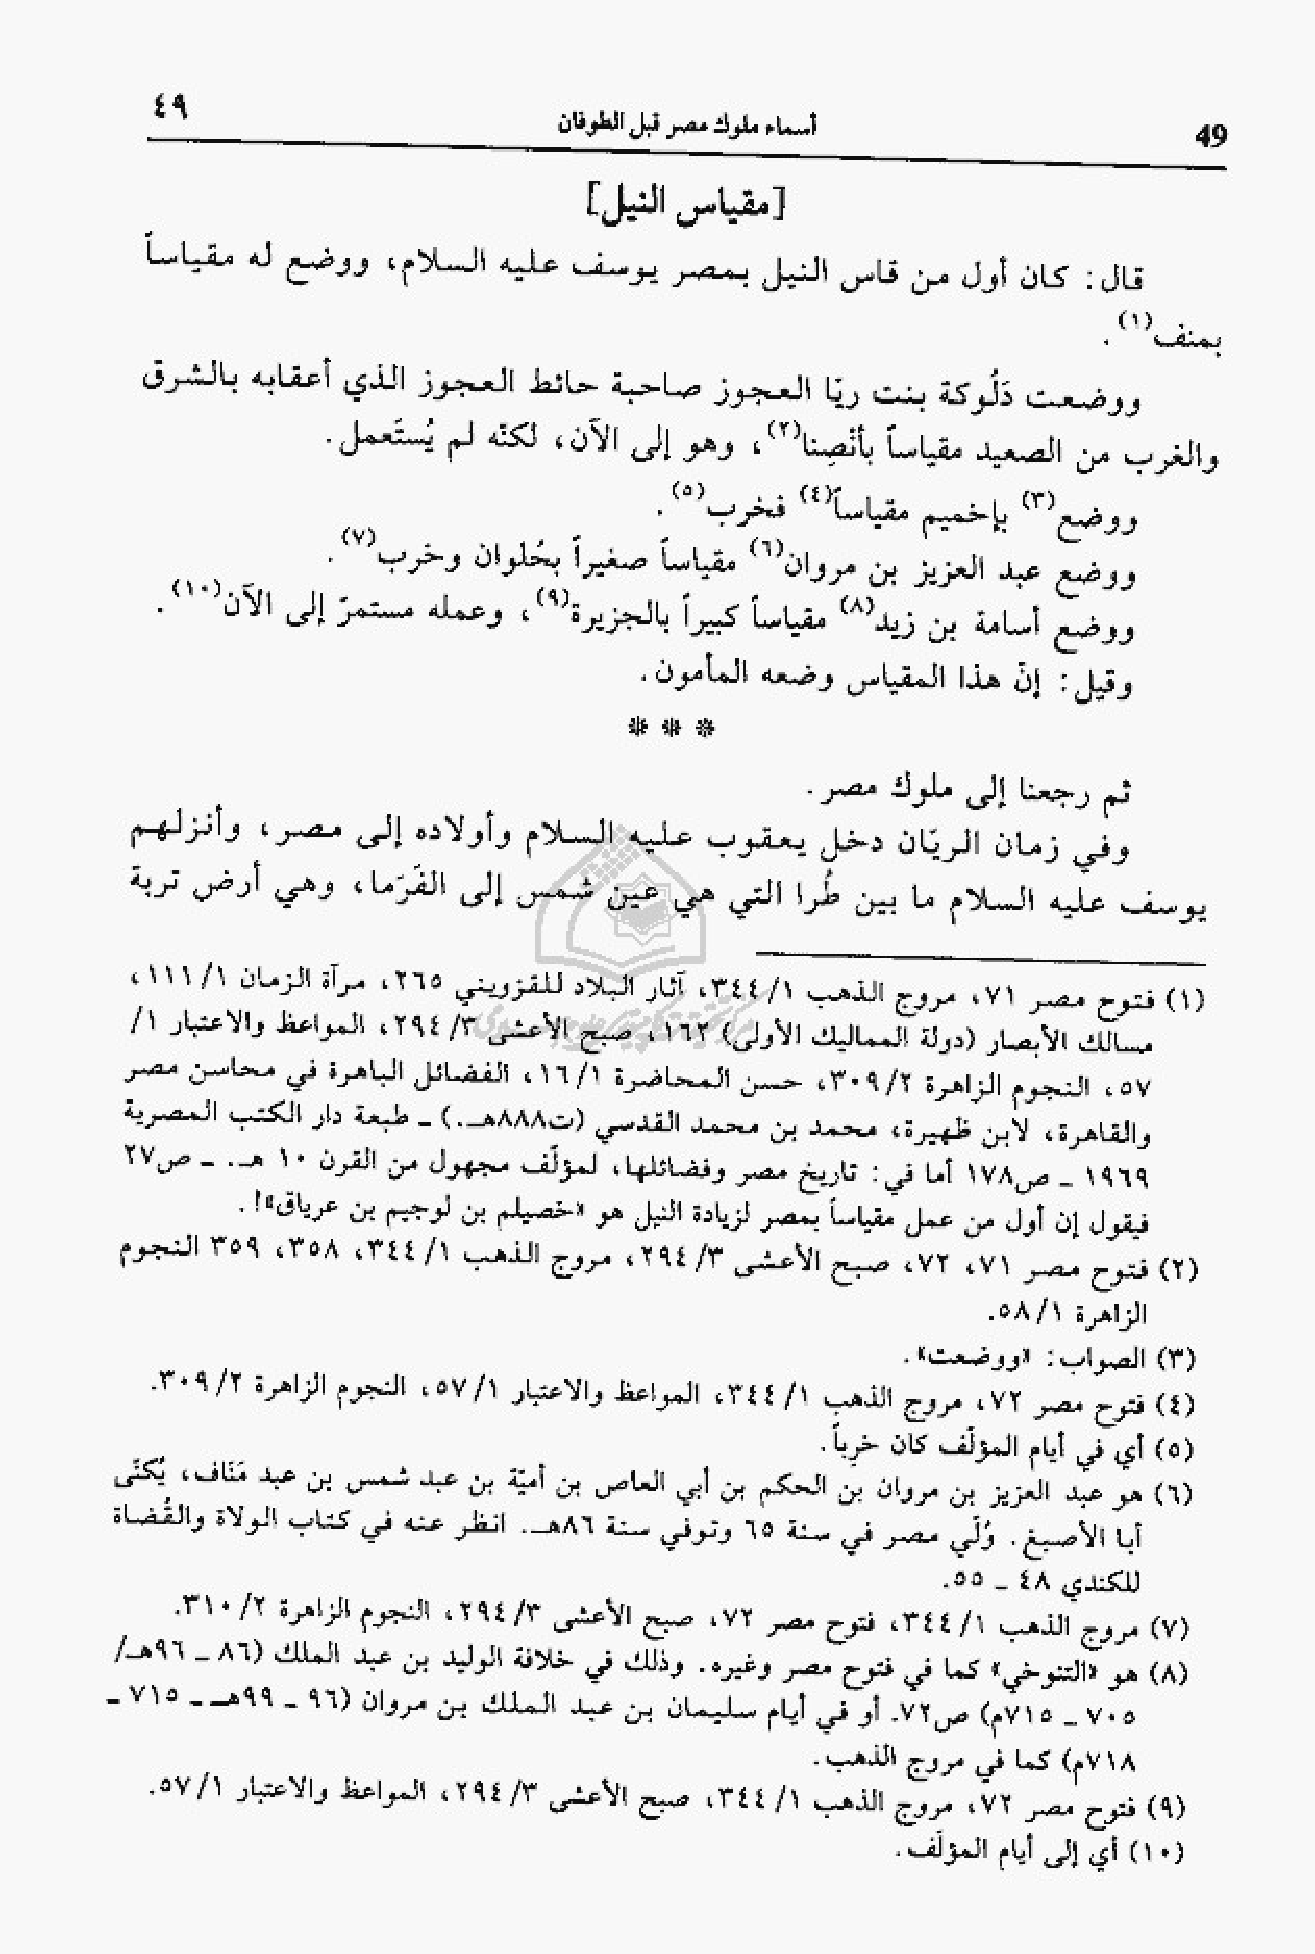 ٤٩
أسماء ملوك مصر قبل الطوفان
49
[مقياس النيل]
قال: كان أول من قاس النيل بمصر يوسف عليه السلام، ووضع له مقياساً
بمنف(١).
ووضعت دَلُوكة بنت ريّا العجوز صاحبة حائط العجوز الذي أعقابه بالشرق
والغرب من الصعيد مقياساً بأنْصِنا(٢)، وهو إلى الآن، لكنّه لم يُستَعمل.
ووضع(٣) بإخميم مقياساً(٤) فخرب(٥).
ووضع عبد العزيز بن مروان(٦) مقياساً صغيراً بحُلوان وخرب(٧).
ووضع أسامة بن زيد(٨) مقياساً كبيراً بالجزيرة(٩)، وعمله مستمرّ إلى الآن(١٠).
وقيل: إنّ هذا المقياس وضعه المأمون.
* * *
ثم رجعنا إلى ملوك مصر.
وفي زمان الريّان دخل يعقوب عليه السلام وأولاده إلى مصر، وأنزلهم
يوسف عليه السلام ما بين طُرا التي هي عين شمس إلى الفَرَما، وهي أرض تربة
(١) فتوح مصر ٧١، مروج الذهب ٣٤٤/١، آثار البلاد للقزويني ٢٦٥، مرآة الزمان ١١١/١،
مسالك الأبصار (دولة المماليك الأولى) ١٦٢، صبح الأعشى ٢٩٤/٣، المواعظ والاعتبار ١/
٥٧، النجوم الزاهرة ٣٠٩/٢، حسن المحاضرة ١٦/١، الفضائل الباهرة في محاسن مصر
والقاهرة، لابن ظهيرة، محمد بن محمد القدسي (ت٨٨٨هـ.) ـ طبعة دار الكتب المصرية
١٩٦٩ ـ ص١٧٨ أما في: تاريخ مصر وفضائلها، لمؤلّف مجهول من القرن ١٠ هـ. ـ ص٢٧
فيقول إن أول من عمل مقياساً بمصر لزيادة النيل هو «خصيلم بن لوجيم بن عرياق»! .
(٢) فتوح مصر ٧١، ٧٢، صبح الأعشى ٢٩٤/٣، مروج الذهب ٣٤٤/١، ٣٥٨، ٣٥٩ النجوم
الزاهرة ٥٨/١.
(٣) الصواب: «ووضعت».
(٤) فتوح مصر ٧٢، مروج الذهب ٣٤٤/١، المواعظ والاعتبار ٥٧/١، النجوم الزاهرة ٣٠٩/٢.
(٥) أي في أيام المؤلّف كان خرِباً.
(٦) هو عبد العزيز بن مروان بن الحكم بن أبي العاص بن أميّة بن عبد شمس بن عبد مَنَاف، يُكنّى
أبا الأصبغ. وُلّي مصر في سنة ٦٥ وتوفي سنة ٨٦هـ. انظر عنه في كتاب الولاة والقُضاة
للكندي ٤٨ ـ ٥٥.
(٧) مروج الذهب ٣٤٤/١، فتوح مصر ٧٢، صبح الأعشى ٢٩٤/٣، النجوم الزاهرة ٣١٠/٢.
(٨) هو «التنوخي» كما في فتوح مصر وغيره. وذلك في خلافة الوليد بن عبد الملك (٨٦ ـ ٩٦هـ/
٧٠٥ ـ ٧١٥م) ص٧٢. أو في أيام سليمان بن عبد الملك بن مروان (٩٦ ـ ٩٩هـ ـ ٧١٥ ـ
٧١٨م) كما في مروج الذهب.
(٩) فتوح مصر ٧٢، مروج الذهب ٣٤٤/١، صبح الأعشى ٢٩٤/٣، المواعظ والاعتبار ٥٧/١.
(١٠) أي إلى أيام المؤلّف.